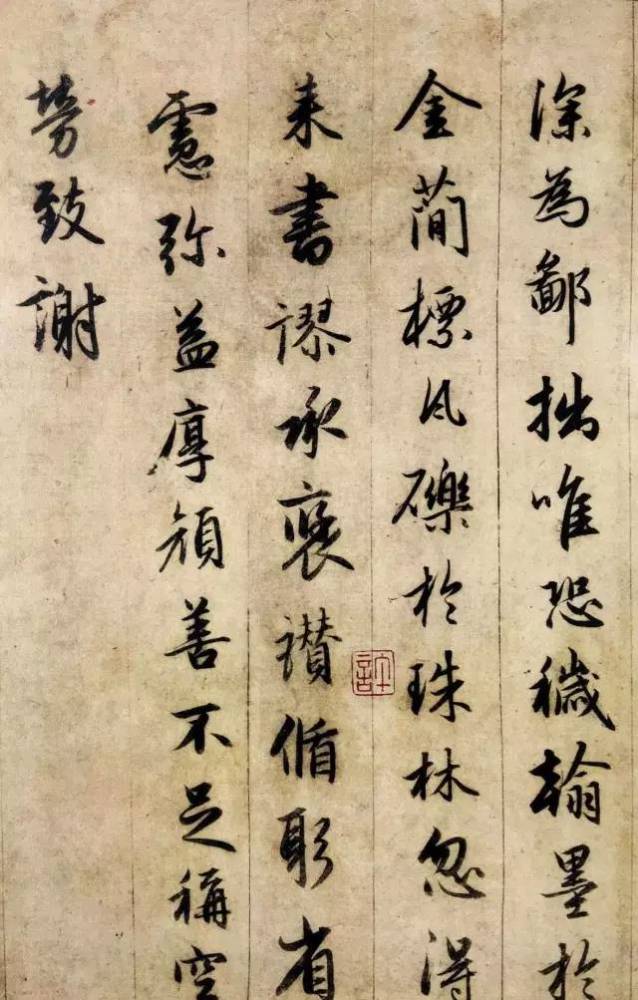 深為鄙拙唯恐穢翰墨於
金蕳標瓦礫於珠林忽得
来書謬承褒讃循躬省
慮弥益厚顔善不足稱空
勞致謝